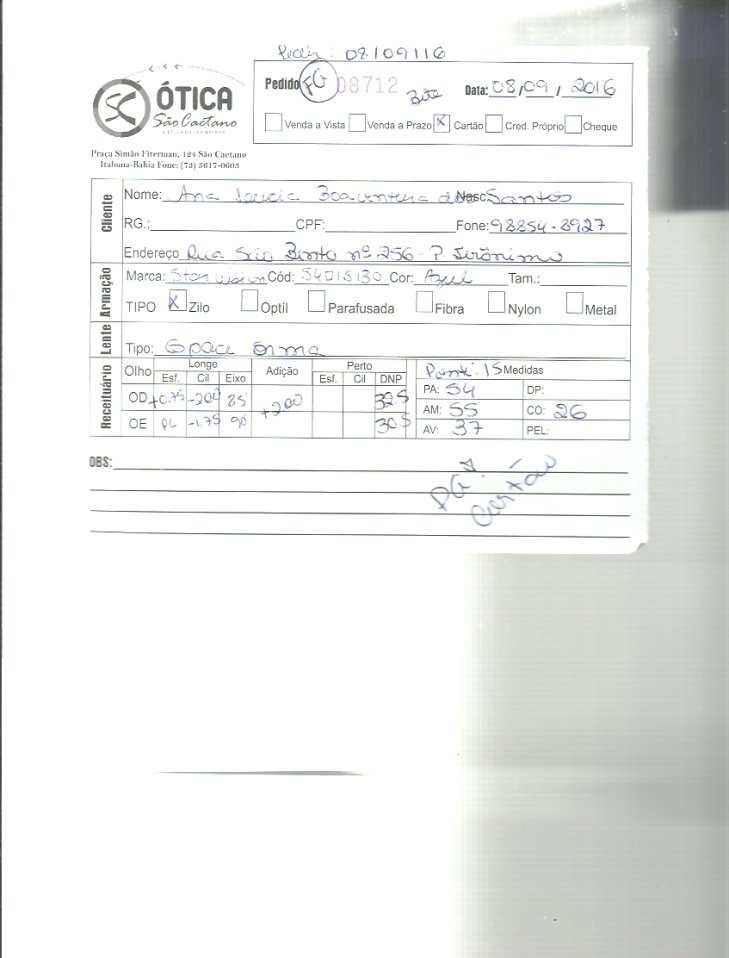 09/09/16
ÓTICA
São Caetano
Praça Simão Fiterman, 124 São Caetano
Itabuna-Bahia Fone: (73) 3617-0603
Pedido FG 08712 Data: 08/09/2016
Venda a Vista Venda a Prazo X Cartão Cred. Próprio Cheque
Cliente
Nome: Ana Lucia Boaventura dos Nasc: Santos
RG.: CPF: Fone: 98854-8927
Endereço Rua São Bento nº 256 - P. Jerônimo
Armação
Marca: Stan vision Cód: 54015130 Cor: Azul Tam.:
TIPO X Zilo Optil Parafusada Fibra Nylon Metal
Lente
Tipo: Space Orma
Receituário
Olho Longe Adição Perto Pont. 15 Medidas
Esf. Cil Eixo Esf. Cil DNP
OD +0.75 -200 85 +200 32.5 PA: 54 DP:
AM: 55 CO: 26
OE PL -1.75 90 30.5 AV: 37 PEL:
OBS:
PG
Cartão